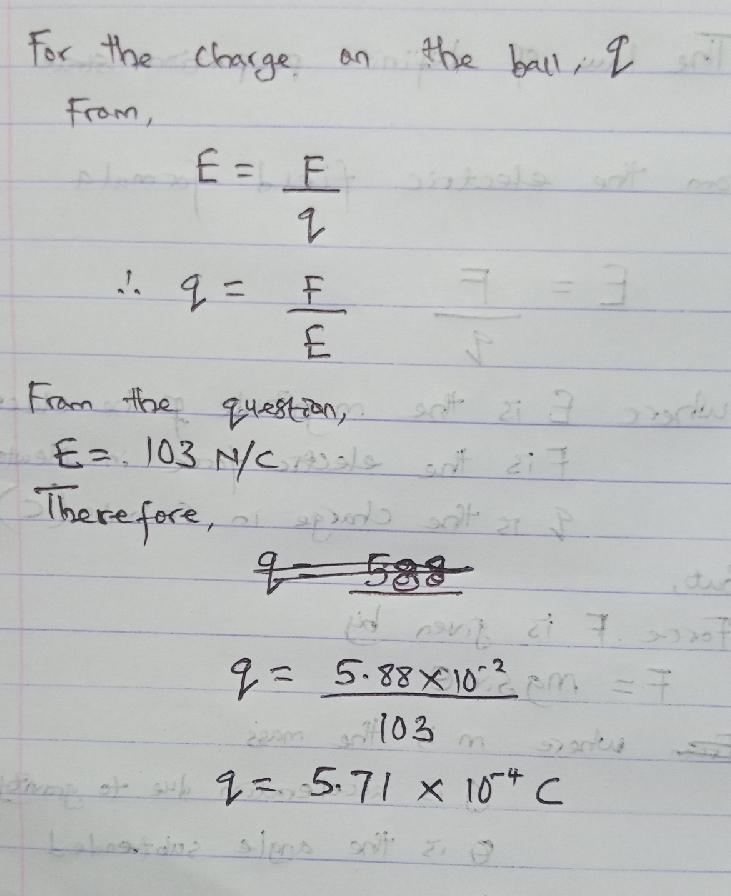 For the charge on the ball, q
From,
E = F/q
∴ q = F/E
From the question,
E = 103 N/C
Therefore,
q = 588
q = 5.88 × 10⁻²/103
q = 5.71 × 10⁻⁴ C